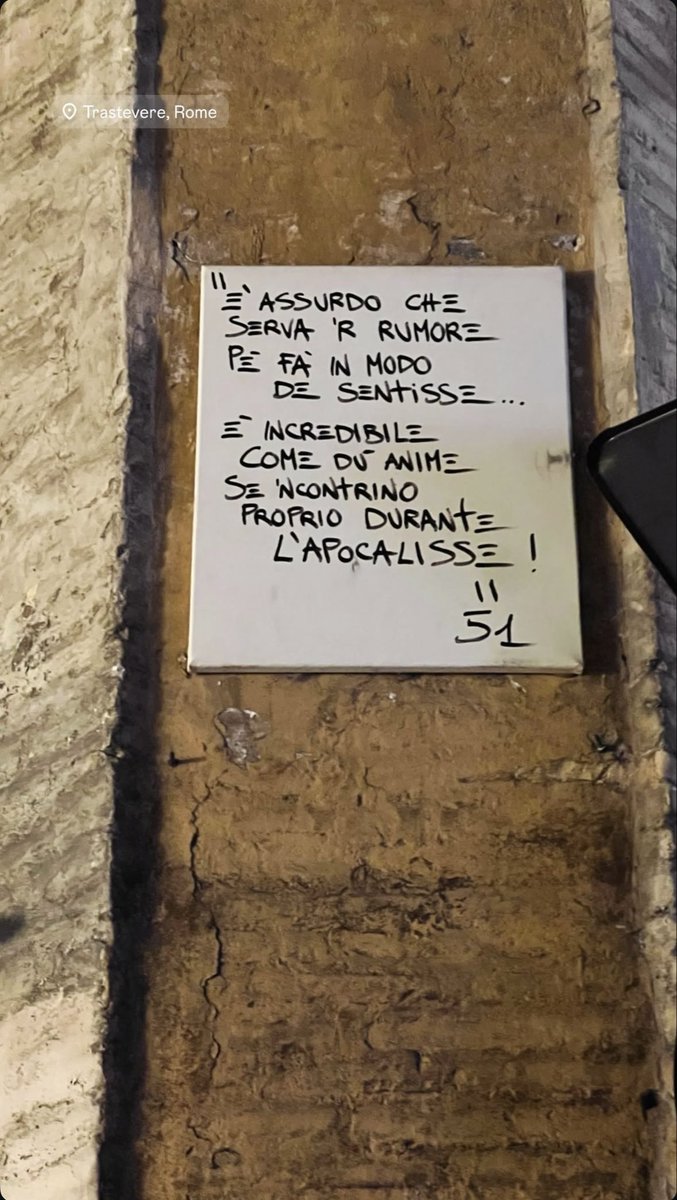 Trastevere, Rome
"E' ASSURDO CHE
SERVA 'R RUMORE
PE' FA' IN MODO
DE SENTISSE...
E' INCREDIBILE
COME DU' ANIME
SE 'NCONTRINO
PROPRIO DURANTE
L'APOCALISSE!
"
51